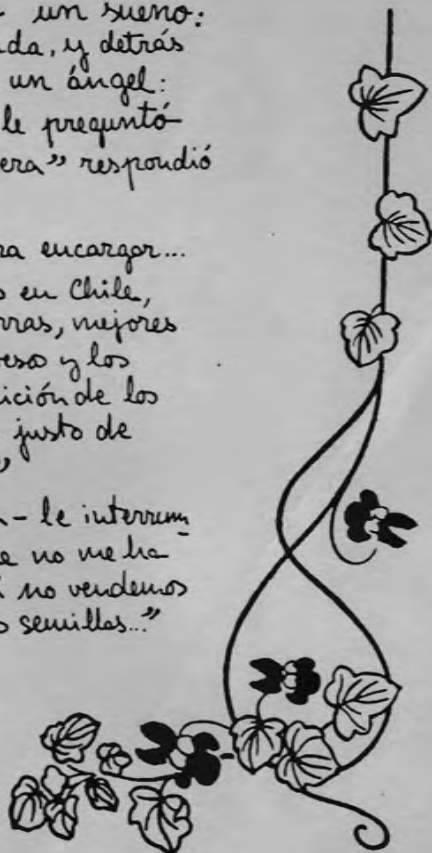 un sueño:
da, y detrás
un ángel:
le preguntó
era" respondió
ra encargar...
o en Chile,
rras, mejores
eso y los
ición de los
justo de
"
- le interrum
e no me ha
no vendemos
semillas..."